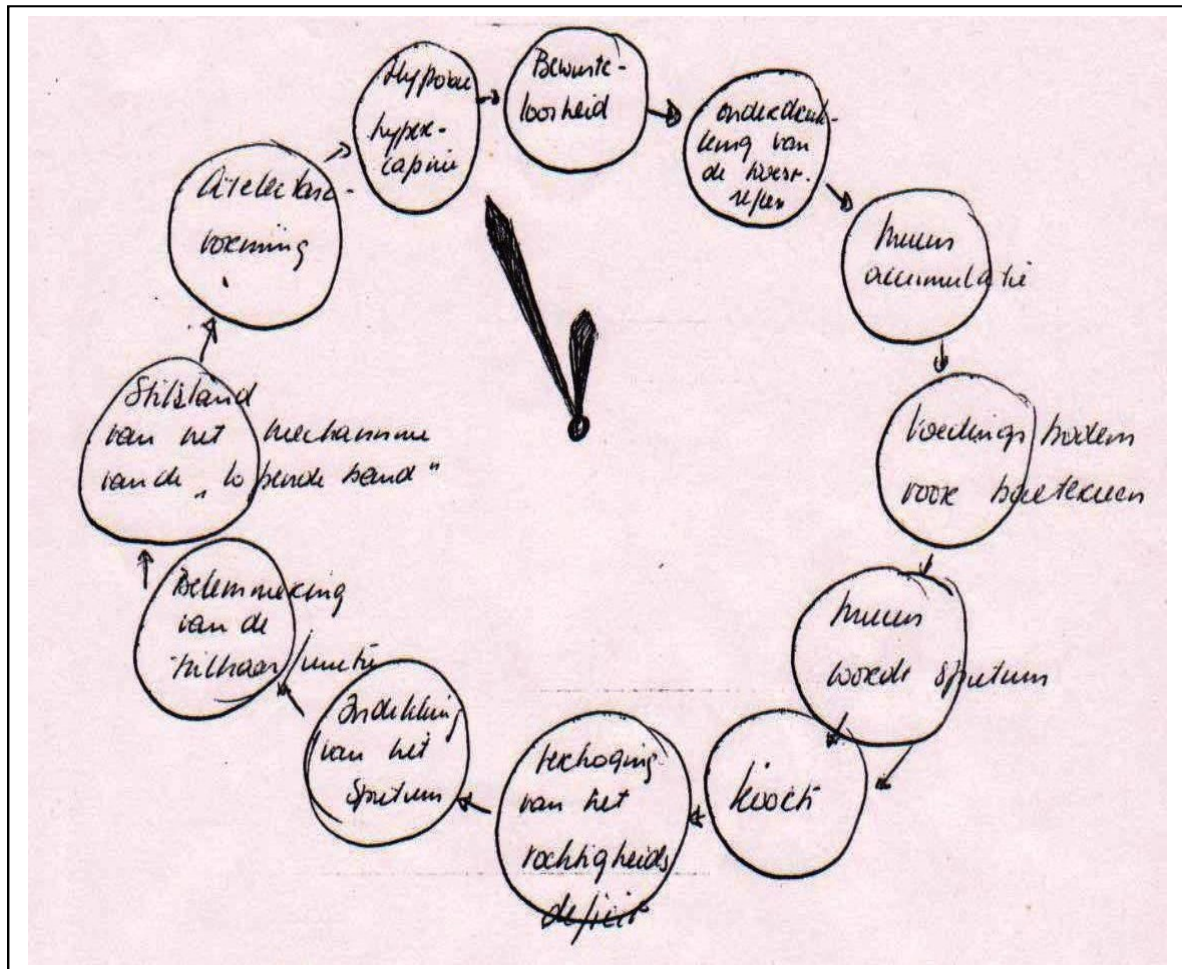 Hypoxie
hyper-
capnie
Bewuste-
loosheid
onderdruk-
king van
de hoest-
reflex
Mucus
accumulatie
Voedingsbodem
voor bacterieen
Mucus
wordt sputum
Koorts
Verhoging
van het
vochtigheids
deficit
Indikking
van het
sputum
Belemmering
van de
trilhaarfunctie
Stilstand
van het mechanisme
van de „lopende band"
Atelectase-
vorming